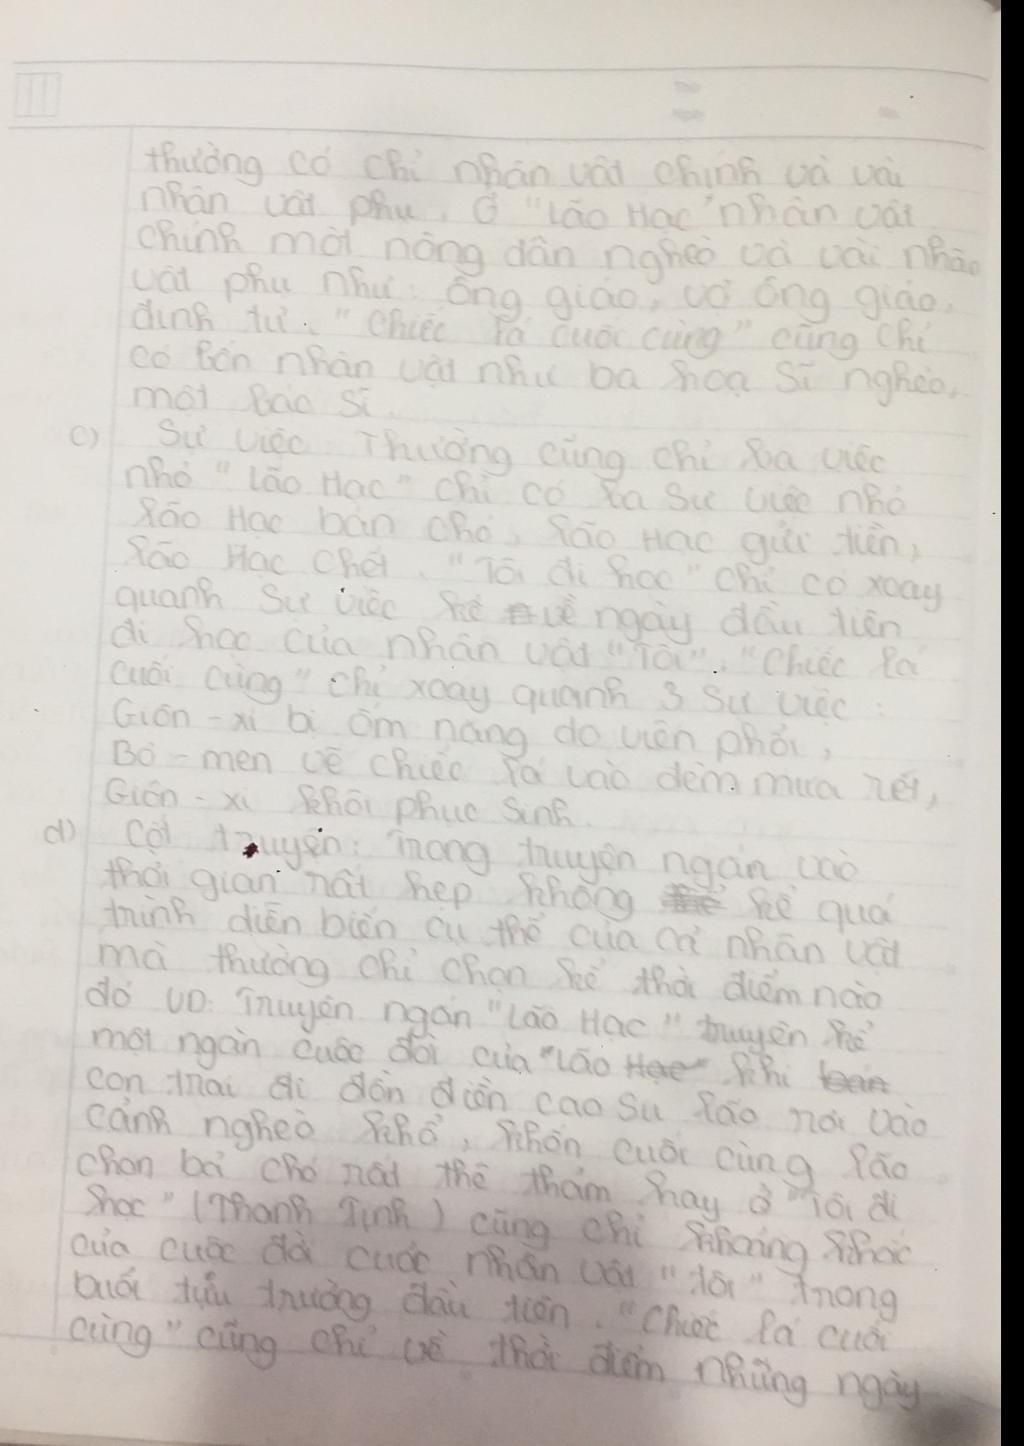 thường có chỉ nhân vật chính và vài
nhân vật phụ. Ở "Lão Hạc" nhân vật
chính một nông dân nghèo và vài nhân
vật phụ như: ông giáo, vợ ông giáo,
binh tư. "Chiếc lá cuối cùng" cũng chỉ
có bốn nhân vật như ba hoạ sĩ nghèo,
một bác sĩ.
c) Sự việc: Thường cũng chỉ ba việc
nhỏ "Lão Hạc" chỉ có ba sự việc nhỏ
Lão Hạc bán chó, lão Hạc gửi tiền,
lão Hạc chết. "Tôi đi học" chỉ có xoay
quanh sự việc kể về ngày đầu tiên
đi học của nhân vật "Tôi". "Chiếc lá
cuối cùng" chỉ xoay quanh 3 sự việc:
Giôn-xi bị ốm nặng do viên phổi,
Bơ-men vẽ chiếc lá vào đêm mưa rét,
Giôn-xi khôi phục sinh.
d) Cột truyện: Trong truyện ngắn vào
thời gian rất hẹp không kể quá
trình diễn biến cụ thể của cả nhân vật
mà thường chỉ chọn kể thời điểm nào
đó VD: Truyện ngắn "Lão Hạc" truyện kể
một ngàn cuộc đời của "Lão Hạc" khi
con trai đi đồn điền cao su lão rơi vào
cảnh nghèo khổ, khốn cuối cùng lão
chọn bả chó rất thê thảm hay ở "Tôi đi
học" (Thanh Tịnh) cũng chỉ khoảng khắc
của cuộc đời cuộc nhân vật "tôi" trong
buổi tựu trường đầu tiên. "Chiếc lá cuối
cùng" cũng chỉ về thời điểm những ngày